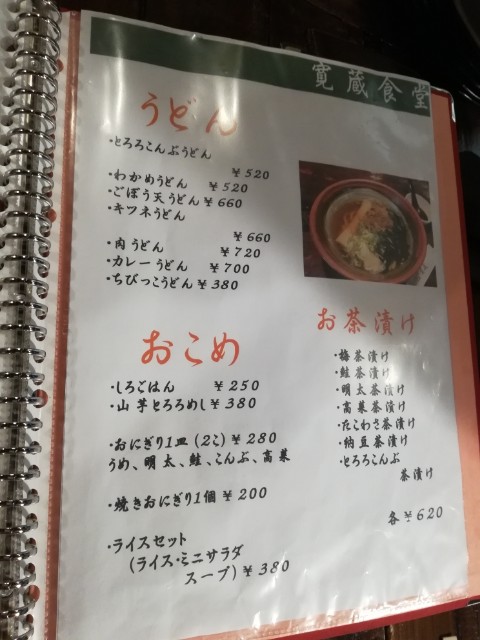 寛蔵食堂
うどん
・とろろこんぶうどん
¥520
・わかめうどん ¥520
・ごぼう天うどん ¥660
・キツネうどん
¥660
・肉うどん ¥720
・カレーうどん ¥700
・ちびっこうどん ¥380
おこめ
・しろごはん ¥250
・山芋とろろめし ¥380
・おにぎり1皿(2こ) ¥280
うめ、明太、鮭、こんぶ、高菜
・焼きおにぎり1個 ¥200
・ライスセット
(ライス・ミニサラダ
スープ) ¥380
お茶漬け
・梅茶漬け
・鮭茶漬け
・明太茶漬け
・高菜茶漬け
・たこわさ茶漬け
・納豆茶漬け
・とろろこんぶ
茶漬け
各 ¥620